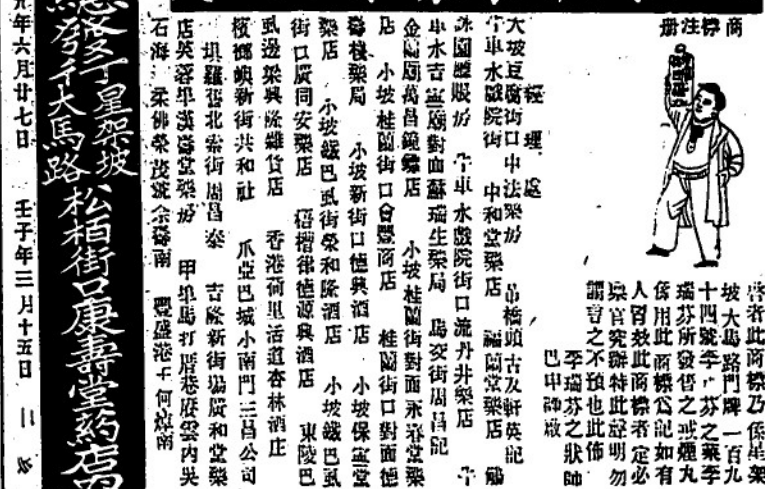 商標注册
啓者此商標乃係星架
坡大馬路門牌一百九
十四號李 芬之藥李
瑞芬所發售之戒煙丸
係用此商標為記如有
人冒效此商標者定必
稟官究辦特此聲明勿
謂言之不預也此佈
李瑞芬之狀師
巴申 啟
經理處
大坡豆腐街口中法藥房 吊橋頭古友軒英記
牛車水戲院街 中和堂藥店 福蘭堂藥店
牛車水戲院街口流丹井藥店 牛
車水吉寧廟對面蘇瑞生藥局 馬交街周昌記
金蘭廟萬昌鏡 店 小坡桂蘭街對面永春堂藥
店 小坡桂蘭街口會豐商店 桂蘭街口對面德
壽棧藥局 小坡新街口德興酒店 小坡保寧堂
藥店 小坡鐵巴虱街榮和隆酒店 小坡鐵巴虱
街口廣同安藥店 梧槽律德源興酒店 東陵巴
虱邊榮興隆雜貨店 香港荷里活道杏林酒庄
檳榔嶼新街共和社 爪亞巴城小南門三昌公司
埧羅舊北索街周昌泰 吉隆新街塲廣和堂藥
店芙蓉埠漢壽堂藥房 甲埠馬打厝巷 雲內吳
石海 柔佛榮茂號余壽南 豐盛港 何 南
總發行星架坡大馬路松柏街口康壽堂約店
年六月廿七日 壬子年三月十五日